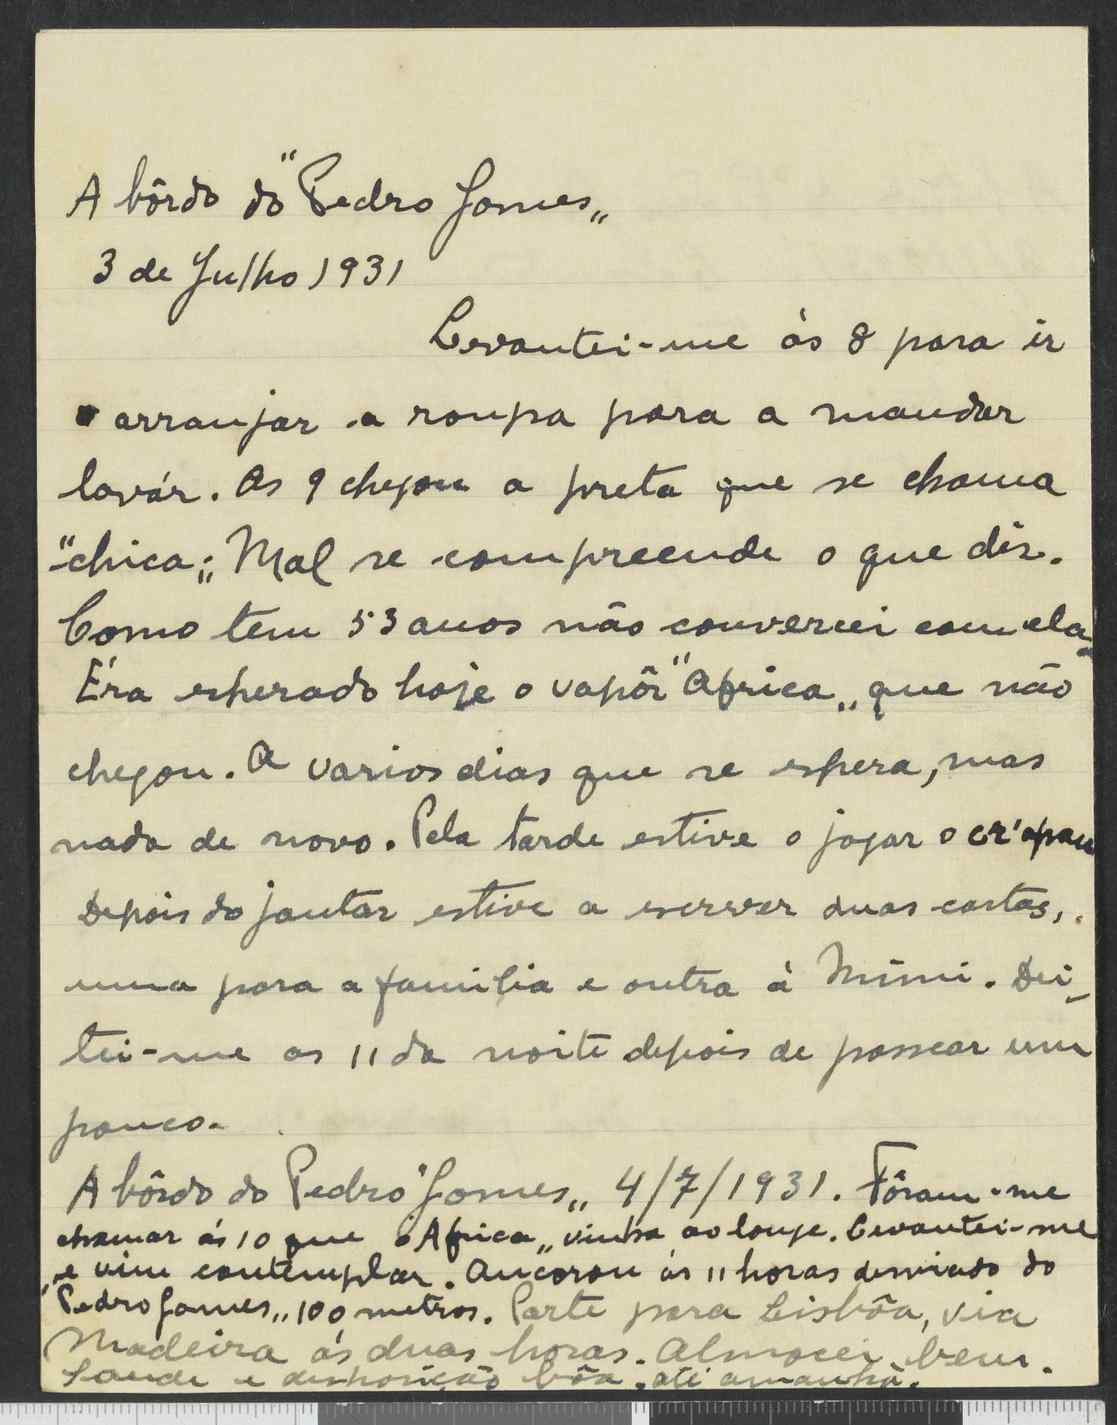 A bôrdo do "Pedro Gomes„
3 de Julho 1931
Levantei-me ás 8 para ir
arranjar a roupa para a mandar
lavár. As 9 chegou a preta que se chama
"chica„; Mal se compreende o que diz.
Como tem 53 anos não conversei com ela.
Éra esperado hoje o vapôr "Africa„ que não
chegou. A varios dias que se espera, mas
nada de novo. Pela tarde estive a jogar o cr'apau
Depois do jantar estive a escrever duas cartas,
uma para a familia e outra à Mimi. Dei-
tei-me as 11 da noite depois de passear um
pouco.
A bôrdo do Pedro "Gomes„ 4/7/1931. Fôram-me
chamar ás 10 que o "Africa„ vinha ao lonje. Levantei-me
e vim contemplar. Ancorou ás 11 horas desviado do
"Pedro Gomes„ 100 metros. Parte para Lisbôa, via
Madeira ás duas horas. Almocei bem.
Saude e disposição bôa, até amanhã.